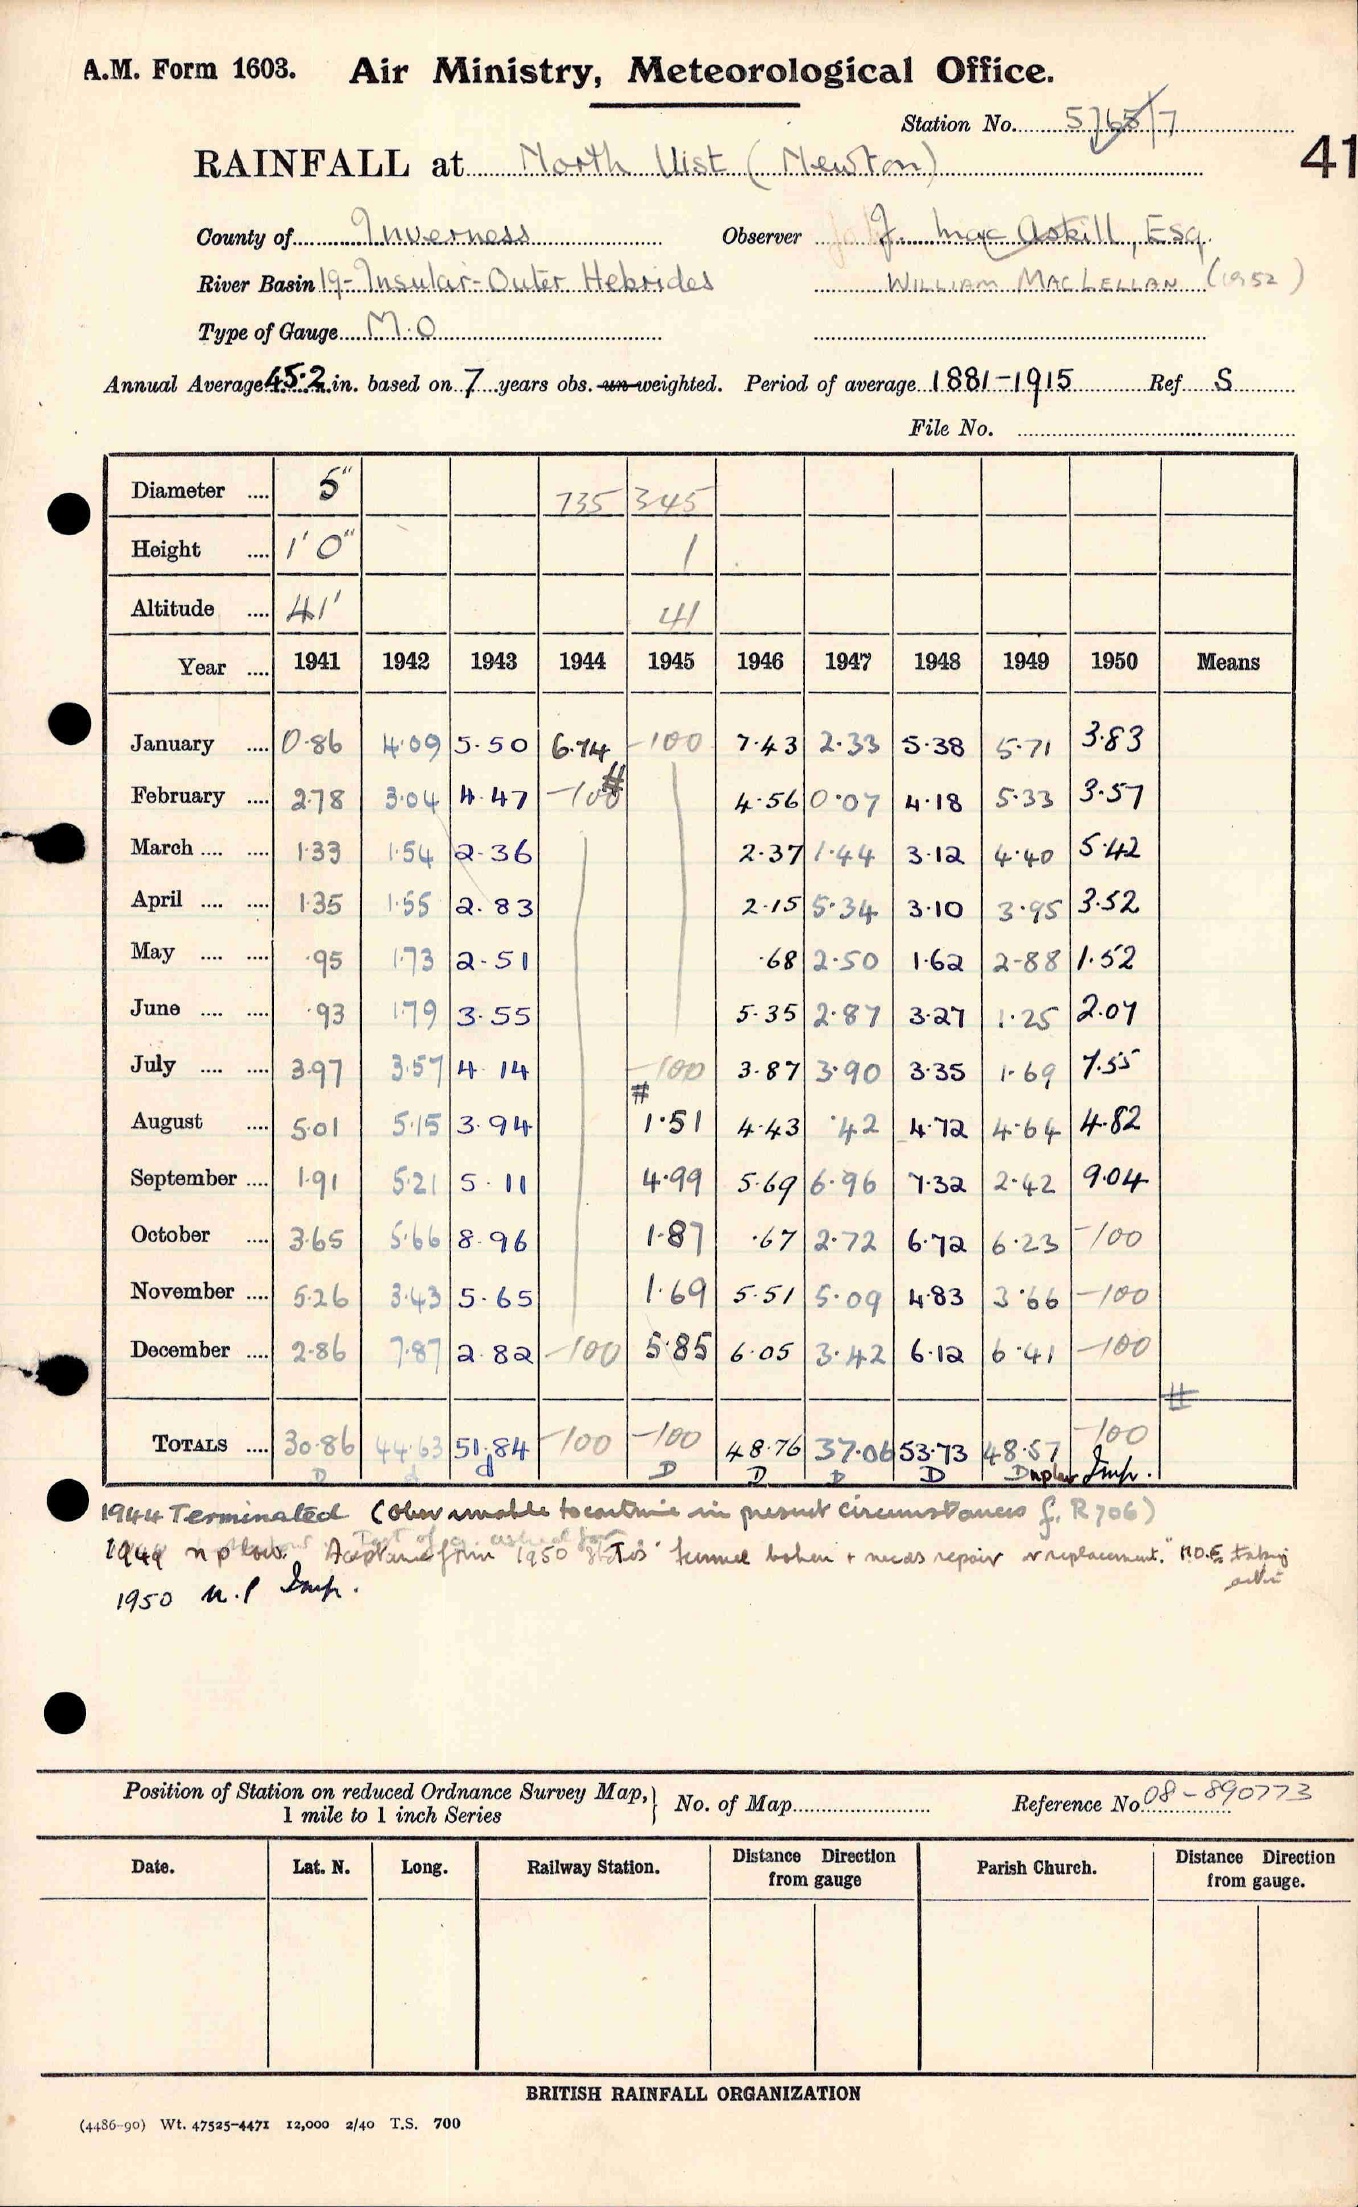 A.M. Form 1603. Air Ministry, Meteorological Office.
Station No. 5765/7
41
RAINFALL at North Uist (Newton)
County of Inverness Observer J. MacAskill, Esq.
River Basin 19-Insular-Outer Hebrides WILLIAM MACLELLAN (1952)
Type of Gauge M.O
Annual Average 45.2 in. based on 7 years obs. un-weighted. Period of average 1881-1915 Ref S
File No.
Diameter .... 5" 735 345
Height .... 1' 0" 1
Altitude .... 41' 41
Year .... 1941 1942 1943 1944 1945 1946 1947 1948 1949 1950 Means
January .... 0.86 4.09 5.50 6.74 -100 7.43 2.33 5.38 5.71 3.83
February .... 2.78 3.04 4.47 -100 # 4.56 0.07 4.18 5.33 3.57
March .... .... 1.33 1.54 2.36 2.37 1.44 3.12 4.40 5.42
April .... .... 1.35 1.55 2.83 2.15 5.34 3.10 3.95 3.52
May .... .... .95 1.73 2.51 .68 2.50 1.62 2.88 1.52
June .... .... .93 1.79 3.55 5.35 2.87 3.27 1.25 2.07
July .... .... 3.97 3.57 4.14 -100 3.87 3.90 3.35 1.69 7.55
August .... 5.01 5.15 3.94 # 1.51 4.43 .42 4.72 4.64 4.82
September .... 1.91 5.21 5.11 4.99 5.69 6.96 7.32 2.42 9.04
October .... 3.65 5.66 8.96 1.87 .67 2.72 6.72 6.23 -100
November .... 5.26 3.43 5.65 1.69 5.51 5.09 4.83 3.66 -100
December .... 2.86 7.87 2.82 -100 5.85 6.05 3.42 6.12 6.41 -100
#
TOTALS .... 30.86 44.63 51.84 -100 -100 48.76 37.06 53.73 48.57 -100
D d d D D D D D Imp.
1944 Terminated (Obsr unable to continue in present circumstances f. R706)
1949 n p low. 1950 funnel broken + needs repair or replacement." M.O.E. taking
action
1950 n.p Imp.
Position of Station on reduced Ordnance Survey Map,} No. of Map Reference No. 08-890773
1 mile to 1 inch Series
Date. Lat. N. Long. Railway Station. Distance Direction from gauge Parish Church. Distance Direction from gauge.
BRITISH RAINFALL ORGANIZATION
(4486-90) Wt. 47525-4471 12,000 2/40 T.S. 700